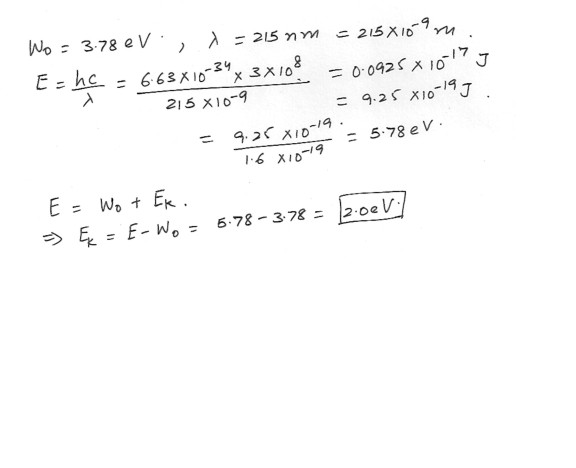 W₀ = 3.78 eV. , λ = 215 nm = 215 × 10⁻⁹ m.
E = hc/λ = 6.63 × 10⁻³⁴ × 3 × 10⁸ / 215 × 10⁻⁹ = 0.0925 × 10⁻¹⁷ J
= 9.25 × 10⁻¹⁹ J.
= 9.25 × 10⁻¹⁹ / 1.6 × 10⁻¹⁹ = 5.78 eV.
E = W₀ + Eₖ.
⇒ Eₖ = E - W₀ = 5.78 - 3.78 = 2.0 eV.